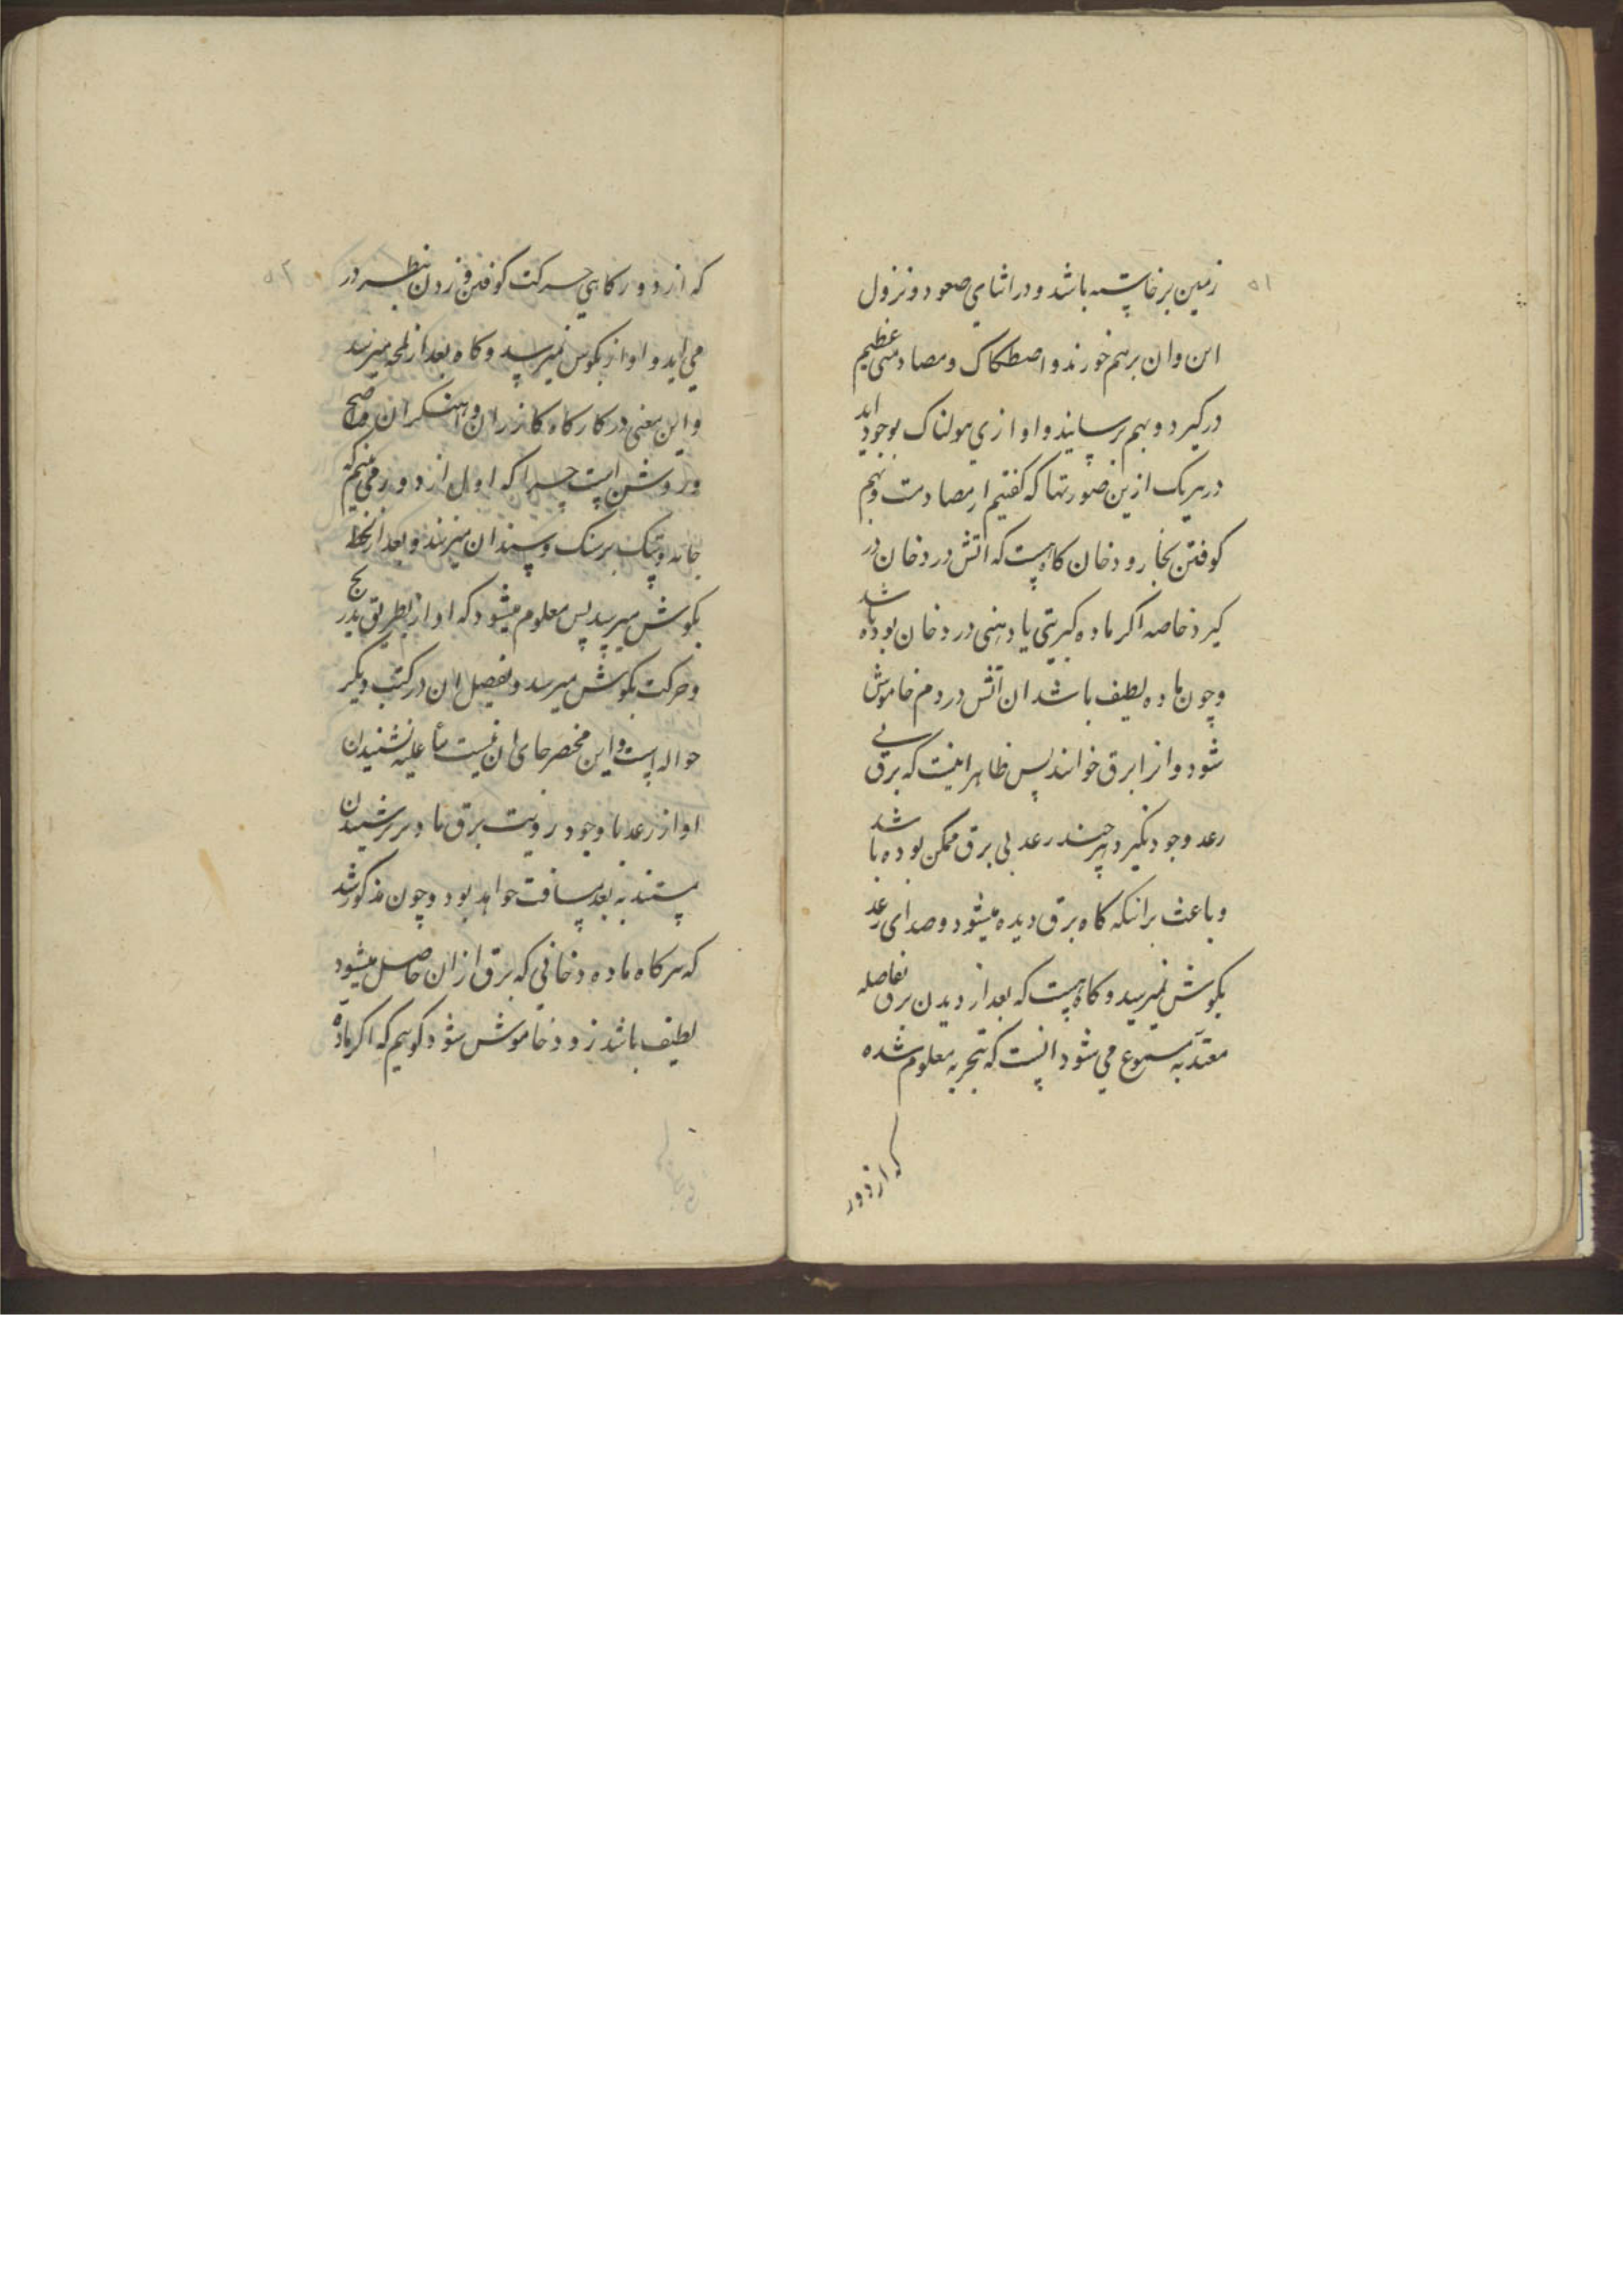 ۵۱
زمین برخاسته باشد و در اثنای صعود و نزول
این و ان برهم خورند و اصطکاک و مصادمتی عظیم
درکیرد و بهم برسایند و اوازی هولناک بوجود اید
در هریک ازین صورتها که کفتیم از مصادمت و بهم
کوفتن بخار و دخان کاهیست که اتش در دخان در
کیرد خاصه اکر ماده کبریتی یا دهنی در دخان بوده باشد
و چون ماده لطیف باشد ان اتش در دم خاموش
شود و انرا برق خوانند پس ظاهر اینست که برق بی
رعد وجود نکیرد هرچند رعد بی برق ممکن بوده باشد
و باعث برانکه کاه برق دیده میشود و صدای رعد
بکوش نمیرسد و کاهیست که بعد از دیدن برق بفاصله
معتدّ به مسموع می شود انست که بتجربه معلوم شده
که از دور
۵۲
که از دور کاهی حرکت کوفتن و زدن بنظر در
می اید و اواز بکوش نمیرسد و کاه بعد از لمحه میرسد
و این معنی در کارکاه کازران و اهنکران واضح
و روشن است چرا که اول از دور می بینم که
جامه و پتک بر سنک و سندان میزنند و بعد از لحظه
بکوش میرسد پس معلوم میشود که اواز بطریق تدریج
و حرکت بکوش میرسد و تفصیل ان در کتب دیکر
حواله است و این مختصر جای ان نیست بنأ علیه نشنیدن
اواز رعد با وجود رویت برق یا دیرتر شنیدن
مستند به بعد مسافت خواهد بود و چون مذکور شد
که هرکاه ماده دخانی که برق ازان حاصل میشود
لطیف باشد زود خاموش شود کوییم که اکر ماده